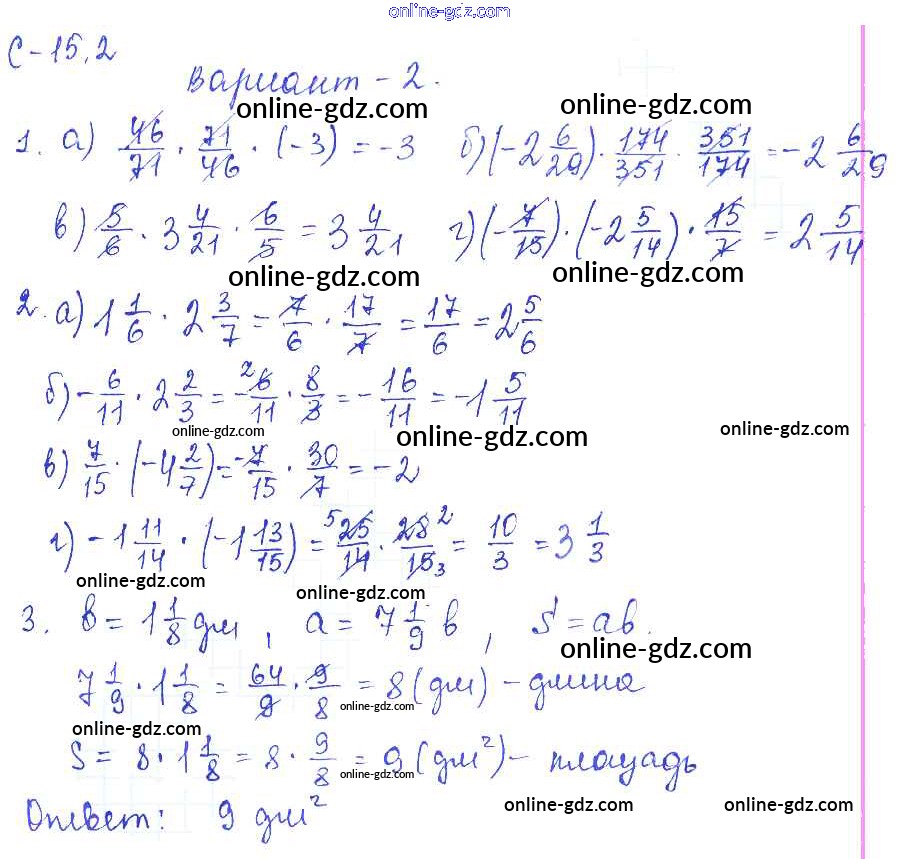 online-gdz.com
С-15.2
Вариант - 2.
online-gdz.com online-gdz.com
1. а) 46/71 · 71/46 · (-3) = -3 б) (-2 6/29) · 174/351 · 351/174 = -2 6/29
в) 5/6 · 3 4/21 · 6/5 = 3 4/21 г) (-7/15) · (-2 5/14) · 15/7 = 2 5/14
online-gdz.com online-gdz.com
2. а) 1 1/6 · 2 3/7 = 7/6 · 17/7 = 17/6 = 2 5/6
б) -6/11 · 2 2/3 = -6/11 2 · 8/3 = -16/11 = -1 5/11
online-gdz.com online-gdz.com online-gdz.com
в) 7/15 · (-4 2/7) = -7/15 · 30/7 = -2
г) -1 11/14 · (-1 13/15) = 5 25/14 · 28 2/15 3 = 10/3 = 3 1/3
online-gdz.com online-gdz.com
3. b = 1 1/8 дм, a = 7 1/9 b, S = ab.
online-gdz.com
7 1/9 · 1 1/8 = 64/9 · 9/8 = 8 (дм) - длина
online-gdz.com online-gdz.com
S = 8 · 1 1/8 = 8 · 9/8 = 9 (дм²) - площадь
online-gdz.com
Ответ: 9 дм²
online-gdz.com online-gdz.com